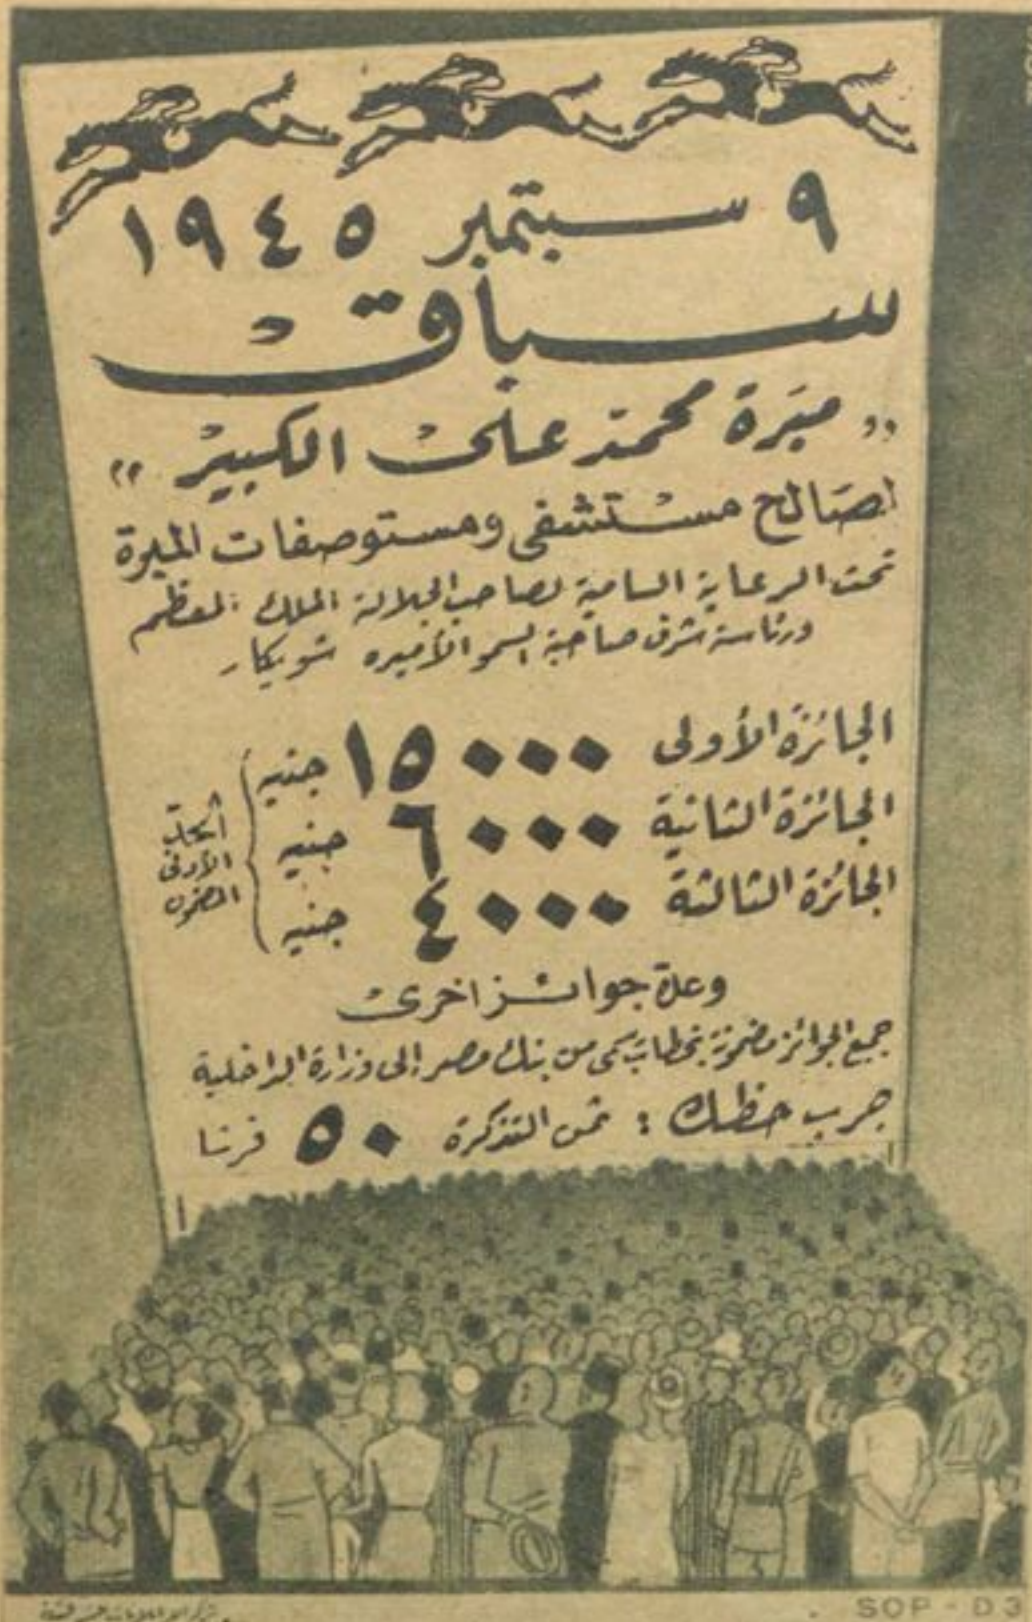 ٩ سبتمبر ١٩٤٥
سباق
„ ميَرة محمّد على الكبير “
لصَالح مستشفى ومستوصفات المبرة
تحت الرعاية السامية لصاحب الجلالة الملك المعظم
ورئاسة شرف صاحبة السمو الأميره شويكار
الجائزة الأولى ١٥٠٠٠ جنيه
الجائزة الثانية ٦٠٠٠ جنيه
الجائزة الثالثة ٤٠٠٠ جنيه
الحد
الأدنى
المضمون
وعدة جوائز اخرى
جميع الجوائز مضمونة بخطاب من بنك مصر إلى وزارة الداخلية
جرب حظك : ثمن التذكرة ٥٠ قرشا
SOP - D3